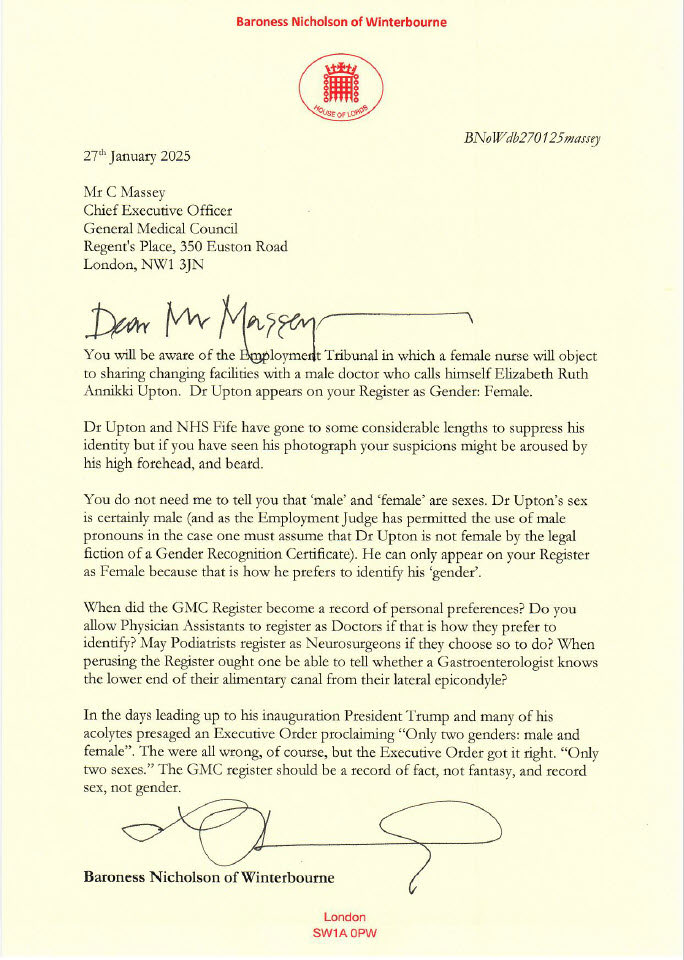 Baroness Nicholson of Winterbourne
HOUSE OF LORDS
BNoWdb270125massey
27th January 2025
Mr C Massey
Chief Executive Officer
General Medical Council
Regent's Place, 350 Euston Road
London, NW1 3JN
Dear Mr Massey
You will be aware of the Employment Tribunal in which a female nurse will object
to sharing changing facilities with a male doctor who calls himself Elizabeth Ruth
Annikki Upton.  Dr Upton appears on your Register as Gender: Female.
Dr Upton and NHS Fife have gone to some considerable lengths to suppress his
identity but if you have seen his photograph your suspicions might be aroused by
his high forehead, and beard.
You do not need me to tell you that ‘male’ and ‘female’ are sexes. Dr Upton’s sex
is certainly male (and as the Employment Judge has permitted the use of male
pronouns in the case one must assume that Dr Upton is not female by the legal
fiction of a Gender Recognition Certificate). He can only appear on your Register
as Female because that is how he prefers to identify his ‘gender’.
When did the GMC Register become a record of personal preferences? Do you
allow Physician Assistants to register as Doctors if that is how they prefer to
identify? May Podiatrists register as Neurosurgeons if they choose so to do? When
perusing the Register ought one be able to tell whether a Gastroenterologist knows
the lower end of their alimentary canal from their lateral epicondyle?
In the days leading up to his inauguration President Trump and many of his
acolytes presaged an Executive Order proclaiming “Only two genders: male and
female”. The were all wrong, of course, but the Executive Order got it right. “Only
two sexes.” The GMC register should be a record of fact, not fantasy, and record
sex, not gender.
Baroness Nicholson of Winterbourne
London
SW1A 0PW